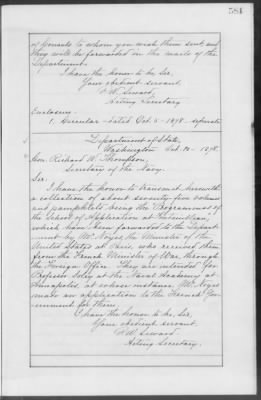 581
of Consuls to whom you wish them sent, and
they will be forwarded in the mails of the
Department.
I have the honor to be, Sir,
Your obedient servant,
F. W. Seward,
Acting Secretary
Enclosure.
1. Circular - dated Oct. 5 - 1878. separate
Department of State,
Washington Oct. 10 - 1878.
Hon. Richard W. Thompson,
Secretary of the Navy.
Sir,
I have the honor to transmit herewith
a collection of about seventy-five volumes
and pamphlets being the Programmes of
the School of Application at Fontainebleau,
which have been forwarded to the Depart-
ment by Mr. Noyes, the Minister of the
United States at Paris, who received them
from the French Minister of War through
the Foreign Office. They are intended for
Professor Soley at the Naval Academy at
Annapolis, at whose instance, Mr. Noyes
made an application to the French Gov-
ernment for them.
I have the honor to be, Sir,
Your obedient servant
F. W. Seward
Acting Secretary.